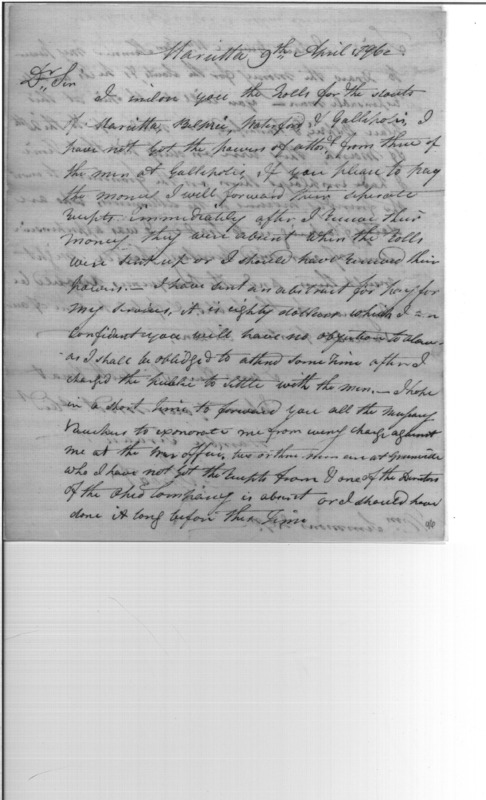 Marietta 9th April 1796
Dr Sir
I inclose you the Rolls for the scouts
of Marietta, Belprie, Waterford & Gallipolis, I
have not got the powers of attory from three of
the men at Gallipolis, if you please to pay
the money I will forward their seperate
recepts immediatily after I receive their
money they were absent when the Rolls
were sent up or I should have received their
powers. — I have sent an abstract for pay for
my services, it is eighty dollars which I am
confident you will have no objection to alow
as I shall be obledged to attend some time after I
charged the public to settle with the men. — I hope
in a short time to forward you all the necessary
Vouchers to exonorate me from every charge against
me at the War office, two or three men are at Greenville
who I have not got the recepts from & one of the Directors
of the Ohio Company is absent or I should have
done it long before this time